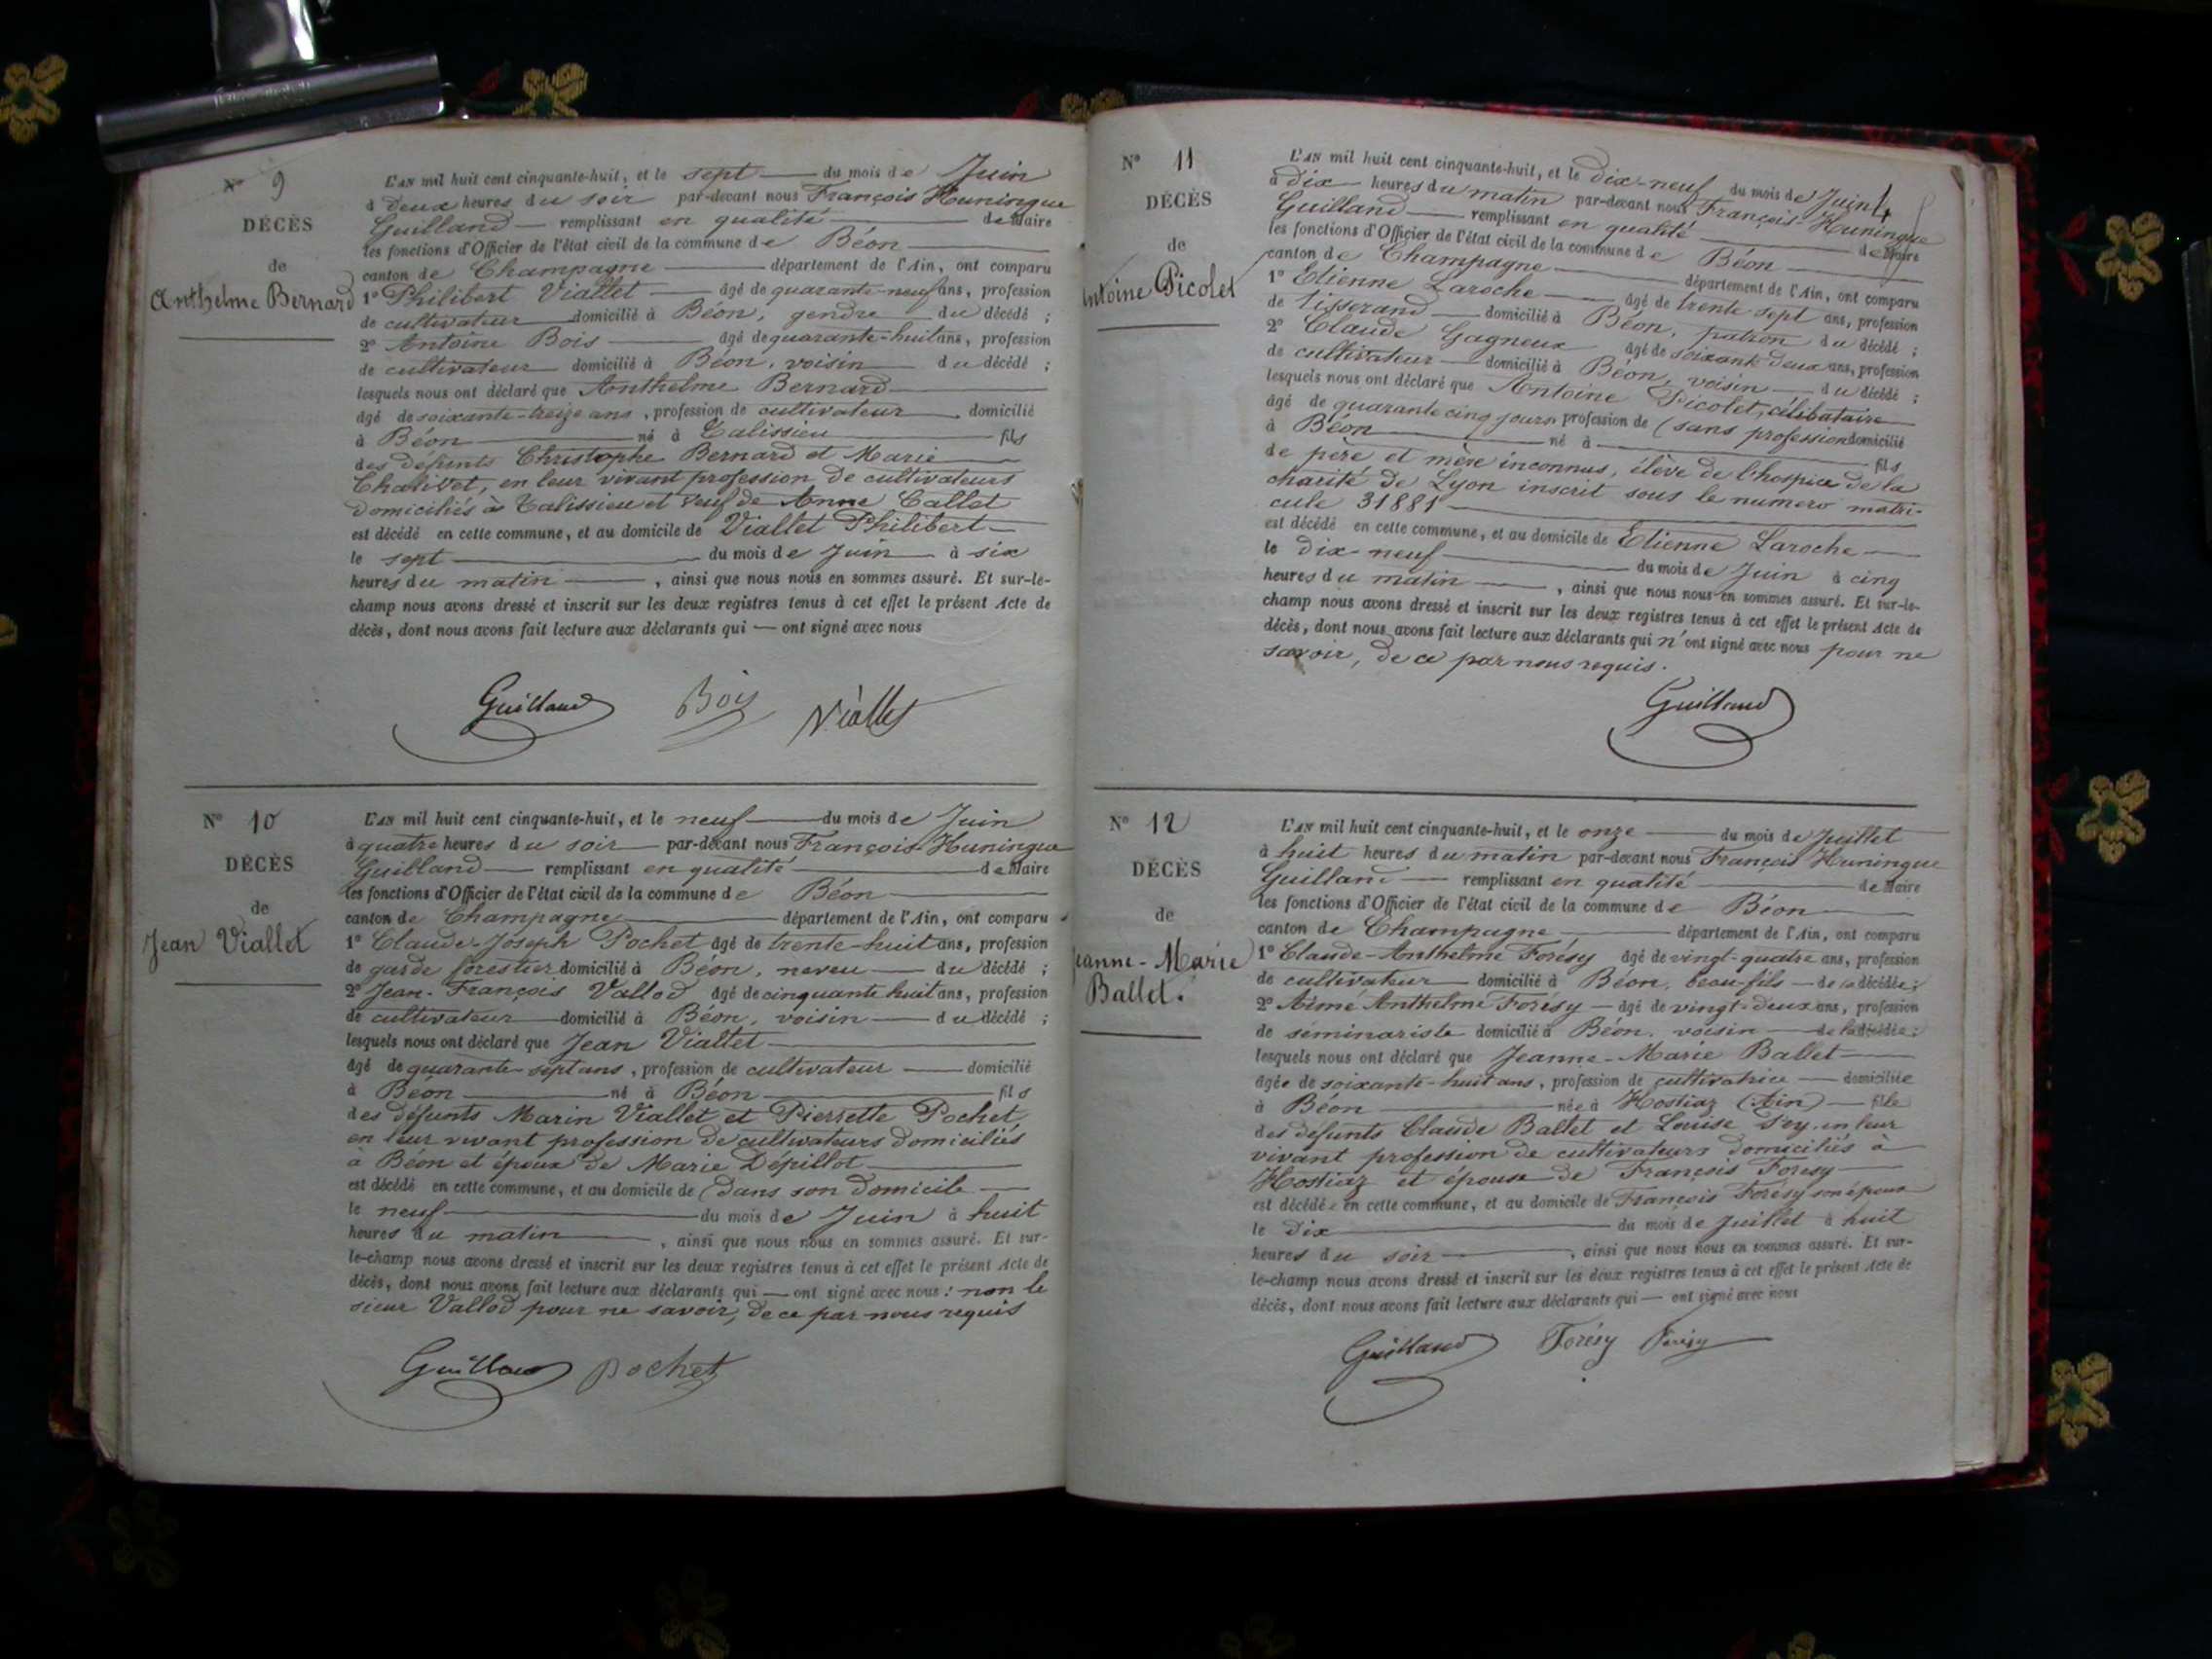 N° 9
DÉCÈS
de
Anthelme Bernard
L'AN mil huit cent cinquante-huit, et le sept du mois de Juin
à deux heures du soir par-devant nous François Huningue
Guilland remplissant en qualité de Maire
les fonctions d'Officier de l'état civil de la commune de Béon
canton de Champagne département de l'Ain, ont comparu
1° Philibert Viallet âgé de quarante-neuf ans, profession
de cultivateur domicilié à Béon, gendre du décédé ;
2° Antoine Bois âgé de quarante-huit ans, profession
de cultivateur domicilié à Béon, voisin du décédé ;
lesquels nous ont déclaré que Anthelme Bernard
âgé de soixante-treize ans, profession de cultivateur domicilié
à Béon né à Talissieu fils
des défunts Christophe Bernard et Marie
Chalivet, en leur vivant profession de cultivateurs
domiciliés à Talissieu et veuf de Anne Callet
est décédé en cette commune, et au domicile de Viallet Philibert
le sept du mois de Juin à six
heures du matin, ainsi que nous nous en sommes assuré. Et sur-le-
champ nous avons dressé et inscrit sur les deux registres tenus à cet effet le présent Acte de
décès, dont nous avons fait lecture aux déclarants qui — ont signé avec nous
Guilland Bois Viallet
N° 10
DÉCÈS
de
Jean Viallet
L'AN mil huit cent cinquante-huit, et le neuf du mois de Juin
à quatre heures du soir par-devant nous François Huningue
Guilland remplissant en qualité de Maire
les fonctions d'Officier de l'état civil de la commune de Béon
canton de Champagne département de l'Ain, ont comparu
1° Claude-Joseph Pochet âgé de trente-huit ans, profession
de garde forestier domicilié à Béon, neveu du décédé ;
2° Jean-François Vallod âgé de cinquante huit ans, profession
de cultivateur domicilié à Béon, voisin du décédé ;
lesquels nous ont déclaré que Jean Viallet
âgé de quarante-sept ans, profession de cultivateur domicilié
à Béon né à Béon fils
des défunts Marin Viallet et Pierrette Pochet
en leur vivant profession de cultivateurs domiciliés
à Béon et époux de Marie Dépillot
est décédé en cette commune, et au domicile de (dans son domicile
le neuf du mois de Juin à huit
heures du matin, ainsi que nous nous en sommes assuré. Et sur-
le-champ nous avons dressé et inscrit sur les deux registres tenus à cet effet le présent Acte de
décès, dont nous avons fait lecture aux déclarants qui — ont signé avec nous : non le
sieur Vallod pour ne savoir, de ce par nous requis
Guilland Pochet
N° 11
DÉCÈS
de
Antoine Picolet
L'AN mil huit cent cinquante-huit, et le dix-neuf du mois de Juin
à dix heures du matin par-devant nous François-Huningue
Guilland remplissant en qualité de Maire
les fonctions d'Officier de l'état civil de la commune de Béon
canton de Champagne département de l'Ain, ont comparu
1° Etienne Laroche âgé de trente-sept ans, profession
de tisserand domicilié à Béon, patron du décédé ;
2° Claude Gagneux âgé de soixante-deux ans, profession
de cultivateur domicilié à Béon, voisin du décédé ;
lesquels nous ont déclaré que Antoine Picolet, célibataire
âgé de quarante cinq jours profession de (sans profession domicilié
à Béon né à fils
de père et mère inconnus, élève de l'hospice de la
charité de Lyon inscrit sous le numero matri-
cule 31881
est décédé en cette commune, et au domicile de Etienne Laroche
le dix-neuf du mois de Juin à cinq
heures du matin, ainsi que nous nous en sommes assuré. Et sur-le-
champ nous avons dressé et inscrit sur les deux registres tenus à cet effet le présent Acte de
décès, dont nous avons fait lecture aux déclarants qui n'ont signé avec nous pour ne
savoir, de ce par nous requis.
Guilland
N° 12
DÉCÈS
de
Jeanne-Marie
Ballet.
L'AN mil huit cent cinquante-huit, et le onze du mois de Juillet
à huit heures du matin par-devant nous François Huningue
Guilland remplissant en qualité de Maire
les fonctions d'Officier de l'état civil de la commune de Béon
canton de Champagne département de l'Ain, ont comparu
1° Claude-Anthelme Forésy âgé de vingt-quatre ans, profession
de cultivateur domicilié à Béon, beau-fils de la décédée ;
2° Aimé Anthelme Forésy âgé de vingt-deux ans, profession
de séminariste domicilié à Béon, voisin de la décédée ;
lesquels nous ont déclaré que Jeanne-Marie Ballet
âgée de soixante-huit ans, profession de cultivatrice domiciliée
à Béon née à Hostiaz (Ain) fille
des défunts Claude Ballet et Louise en leur
vivant profession de cultivateurs domiciliés à
Hostiaz et épouse de François Forésy
est décédée en cette commune, et au domicile de François Forésy son époux
le dix du mois de Juillet à huit
heures du soir, ainsi que nous nous en sommes assuré. Et sur-
le-champ nous avons dressé et inscrit sur les deux registres tenus à cet effet le présent Acte de
décès, dont nous avons fait lecture aux déclarants qui — ont signé avec nous
Guilland Forésy Forésy